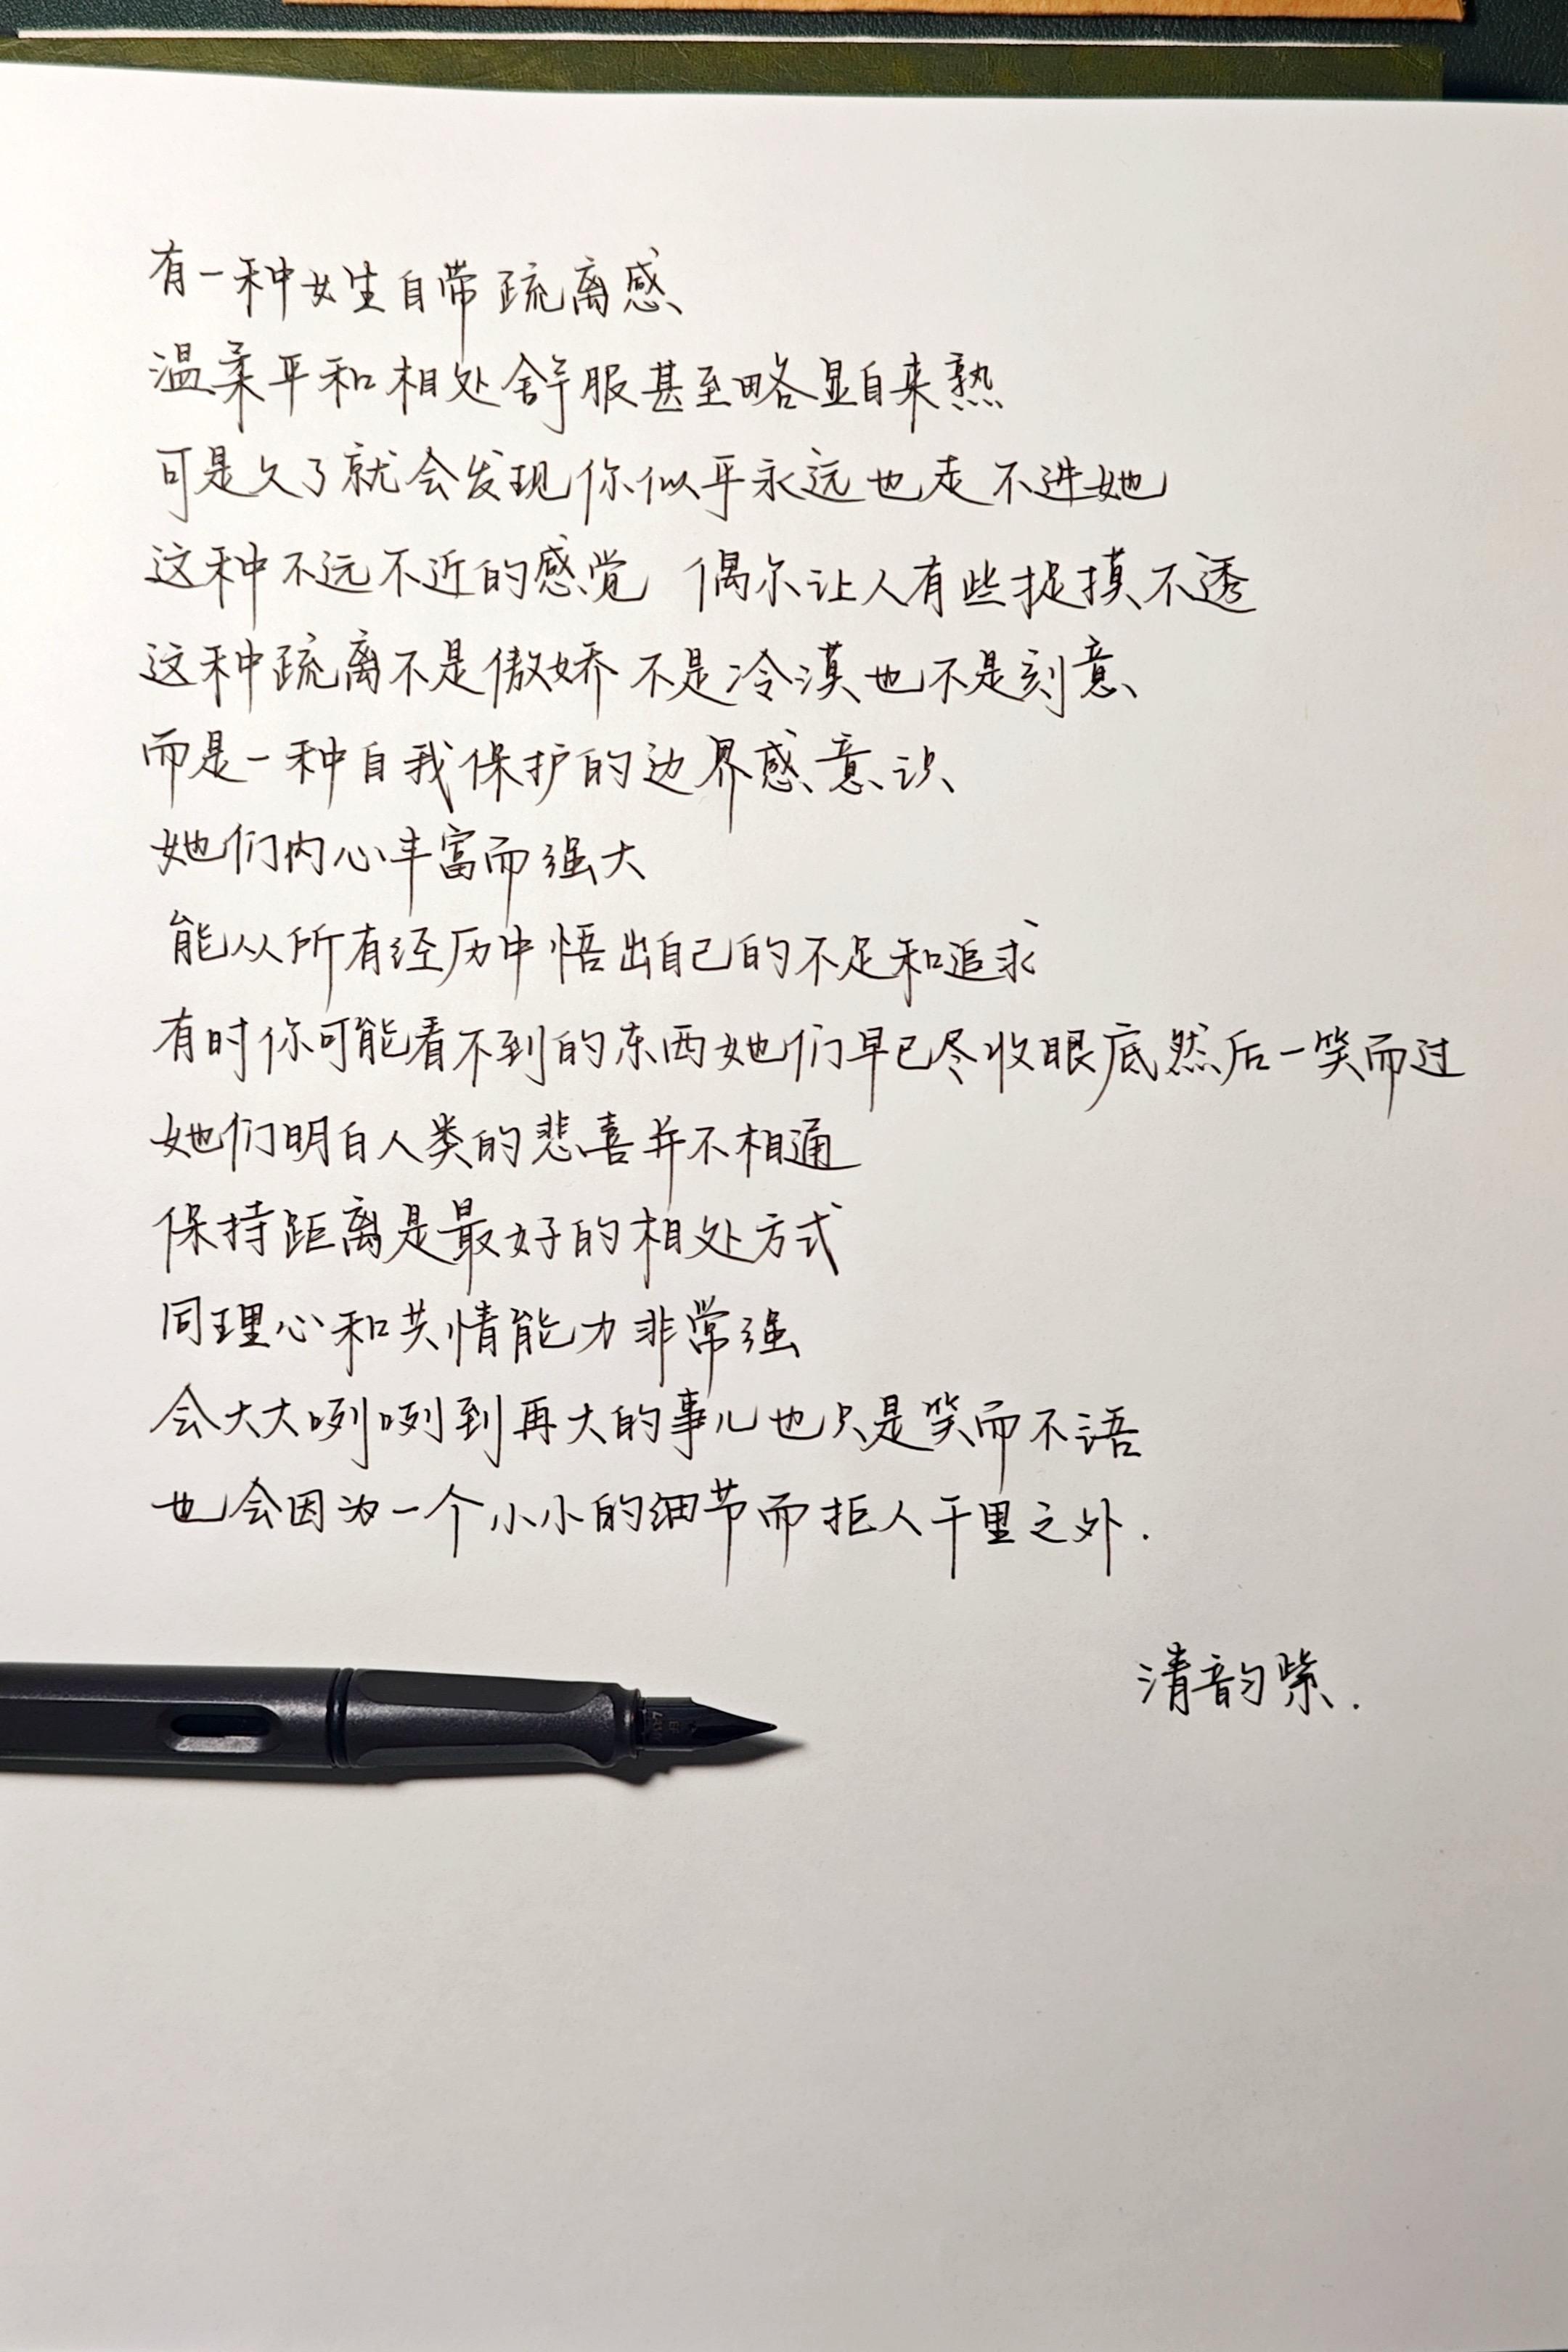 有一种女生自带疏离感
温柔平和相处舒服甚至略显自来熟
可是久了就会发现你似乎永远也走不进她
这种不远不近的感觉 偶尔让人有些捉摸不透
这种疏离不是傲娇 不是冷漠也不是刻意
而是一种自我保护的边界感意识
她们内心丰富而强大
能从所有经历中悟出自己的不足和追求
有时你可能看不到的东西她们早已尽收眼底然后一笑而过
她们明白人类的悲喜并不相通
保持距离是最好的相处方式
同理心和共情能力非常强
会大大咧咧到再大的事儿也只是笑而不语
也会因为一个小小的细节而拒人千里之外.
清韵紫.